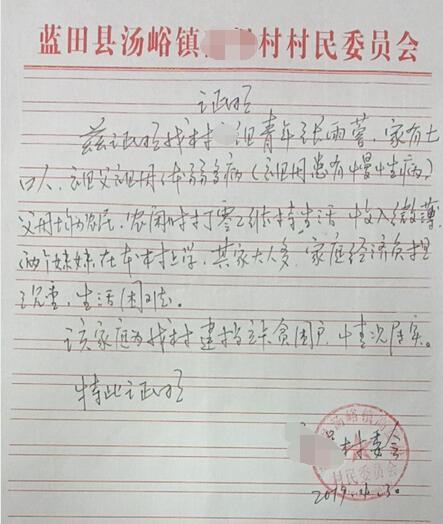 蓝田县汤峪镇 村村民委员会
证明
兹证明我村 组青年张雨蒙,家有七
口人,祖父祖母体弱多病(祖母患有慢性病),
父母均为农民,农闲时打零工维持生活,收入微薄,
两个妹妹在本村上学,其家大人多,家庭经济负担
沉重,生活困难。
该家庭为我村建档立卡贫困户,情况属实。
特此证明
村委会
汤峪镇
村民委员会
2019. .30.